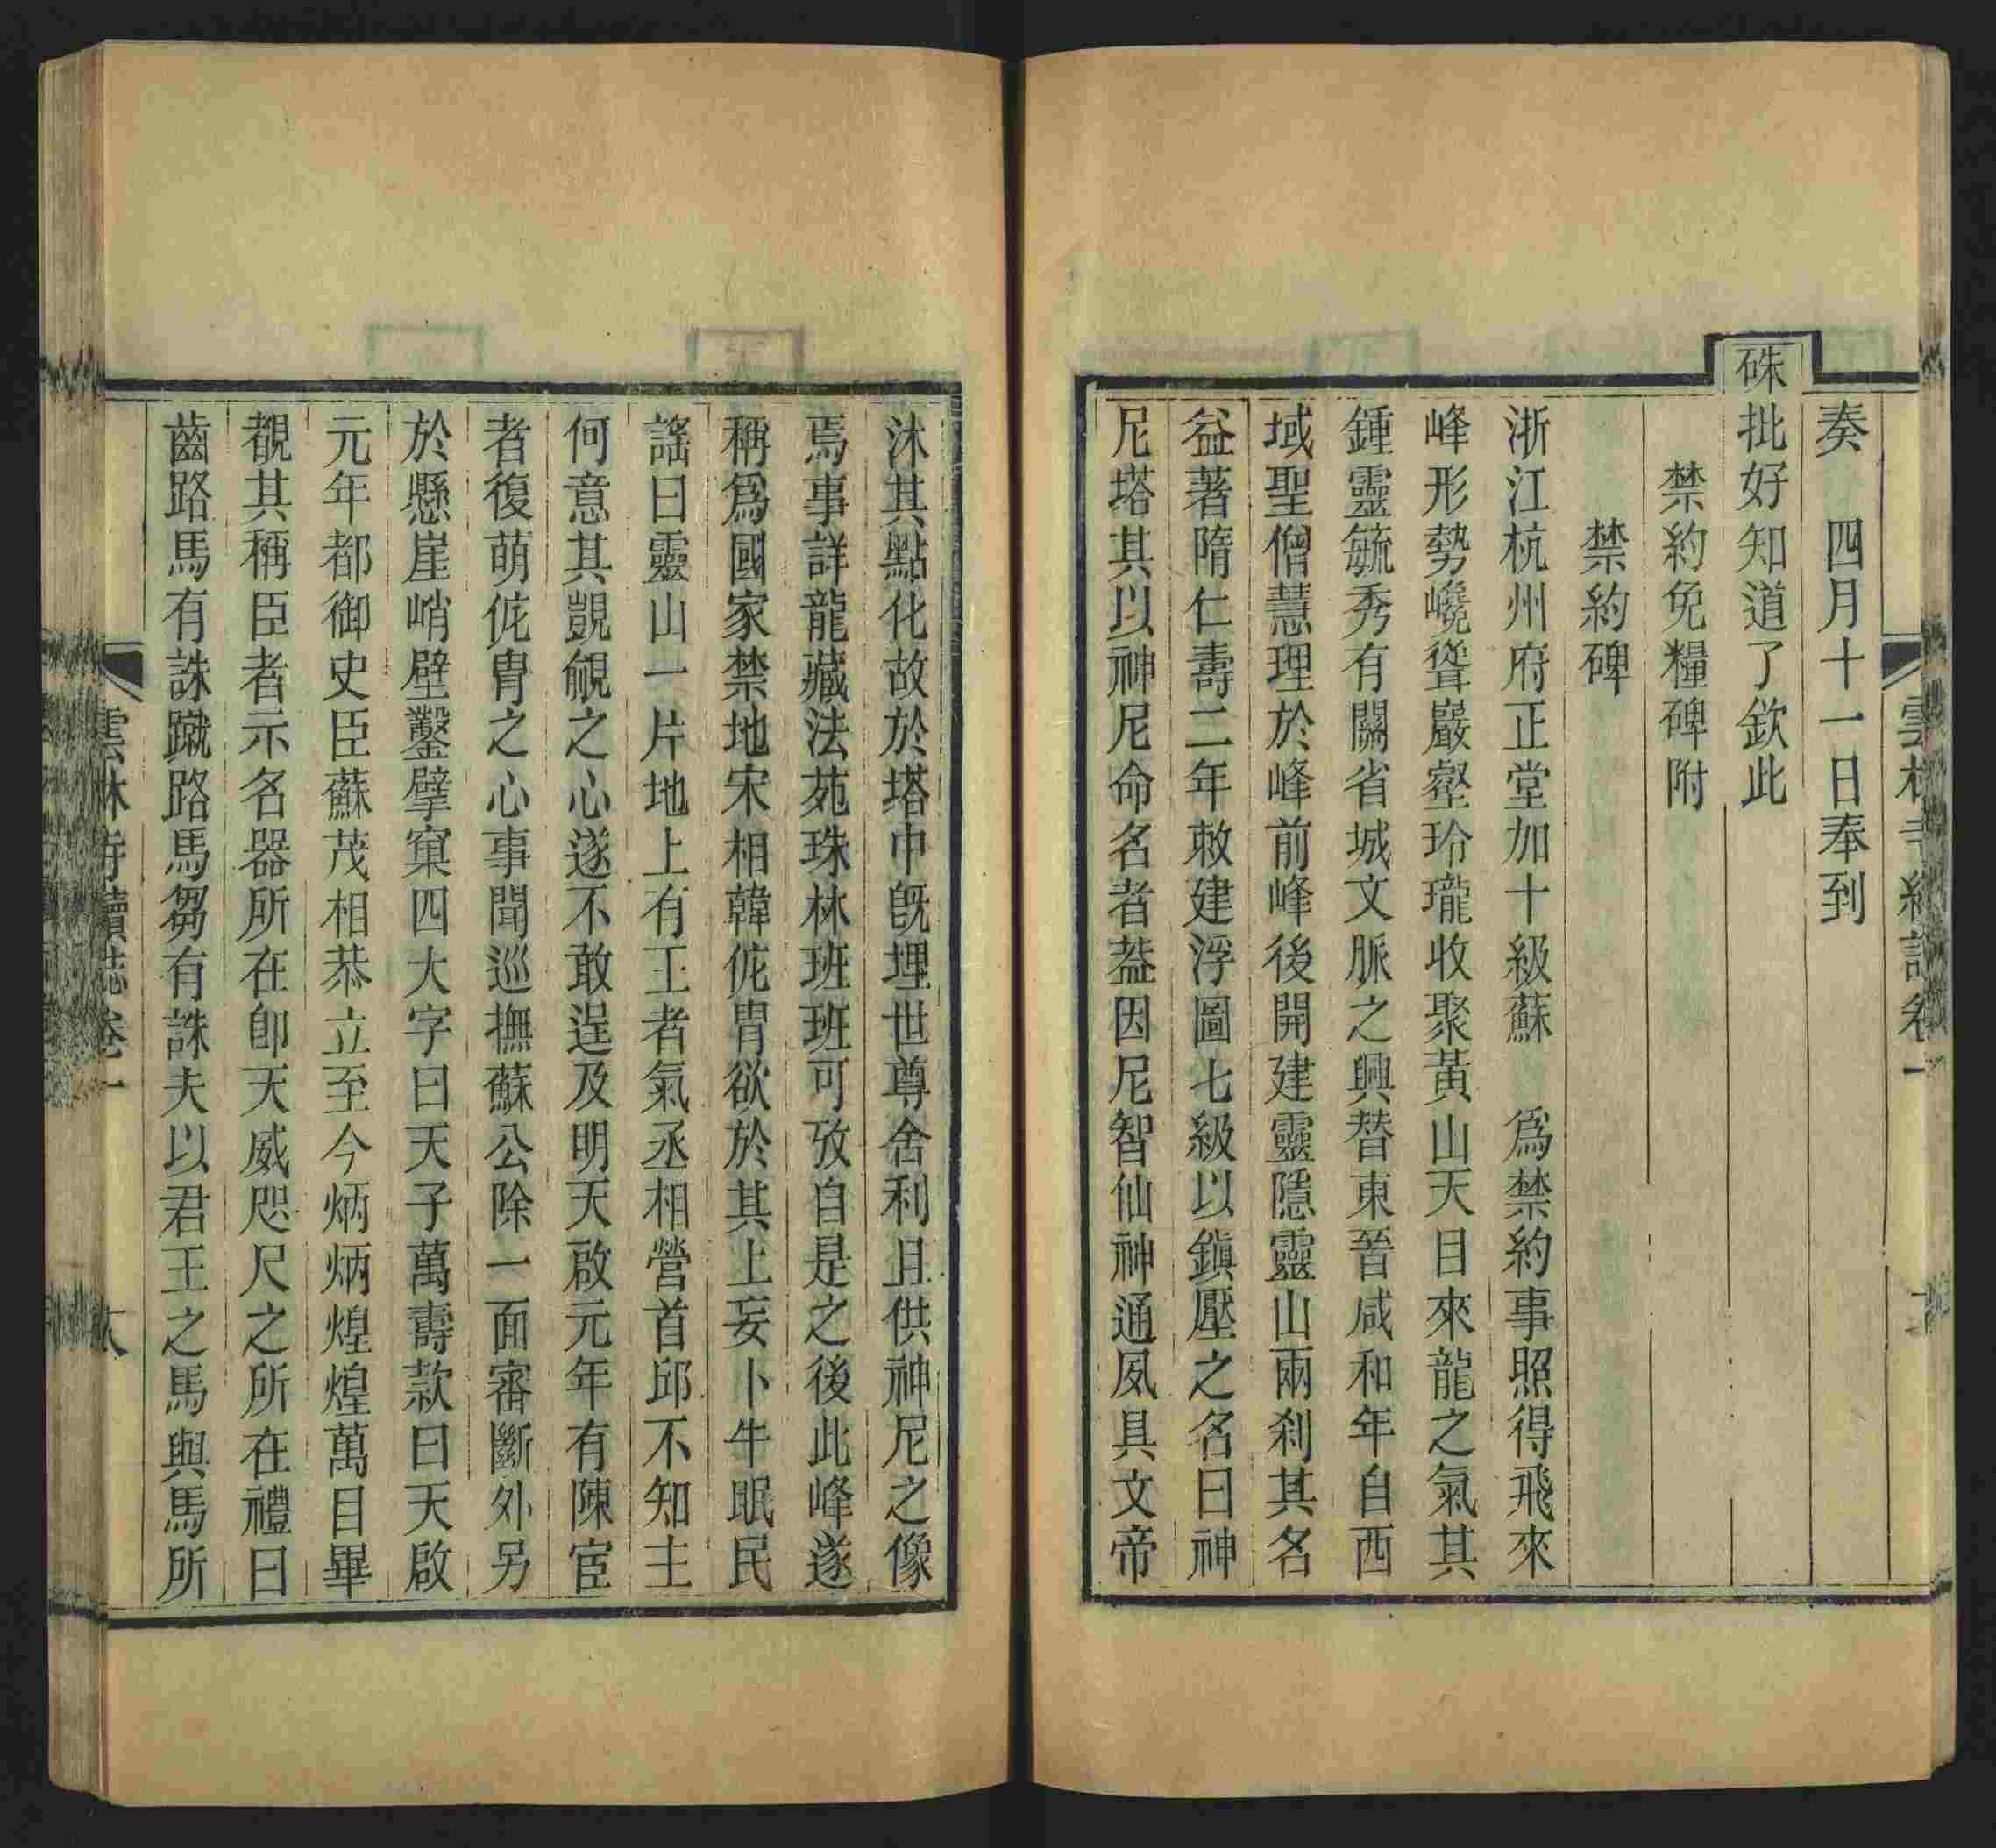 奏　四月十一日奉到
硃批好知道了欽此
禁約免糧碑附
禁約碑
浙江杭州府正堂加十級蘇　爲禁約事照得飛來
峰形勢巉聳巖壑玲瓏收聚黃山天目來龍之氣其
鍾靈毓秀有關省城文脈之興替東晉咸和年自西
域聖僧慧理於峰前峰後開建靈隱靈山兩刹其名
益著隋仁壽二年敕建浮圖七級以鎭壓之名曰神
尼塔其以神尼命名者葢因尼智仙神通夙具文帝
沐其點化故於塔中旣埋世尊舍利且供神尼之像
焉事詳龍藏法苑珠林班班可攷自是之後此峰遂
稱爲國家禁地宋相韓侂胄欲於其上妄卜牛眠民
謠曰靈山一片地上有王者氣丞相營首邱不知主
何意其覬覦之心遂不敢逞及明天啟元年有陳宦
者復萌侂胄之心事聞巡撫蘇公除一面審斷外另
於懸崖峭壁鑿擘窠四大字曰天子萬壽款曰天啟
元年都御史臣蘇茂相恭立至今炳炳煌煌萬目畢
覩其稱臣者示名器所在卽天威咫尺之所在禮曰
齒路馬有誅蹴路馬芻有誅夫以君王之馬與馬所
雲林寺續誌卷一